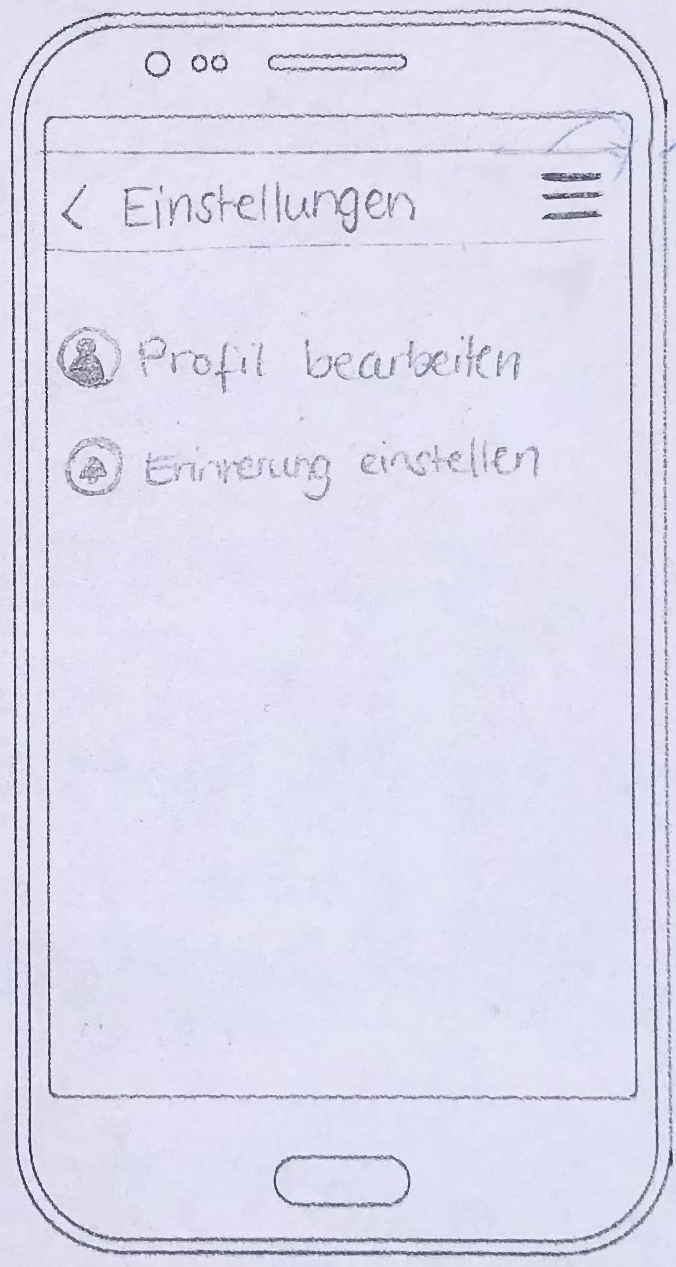 < Einstellungen
Profil bearbeiten
Erinnerung einstellen